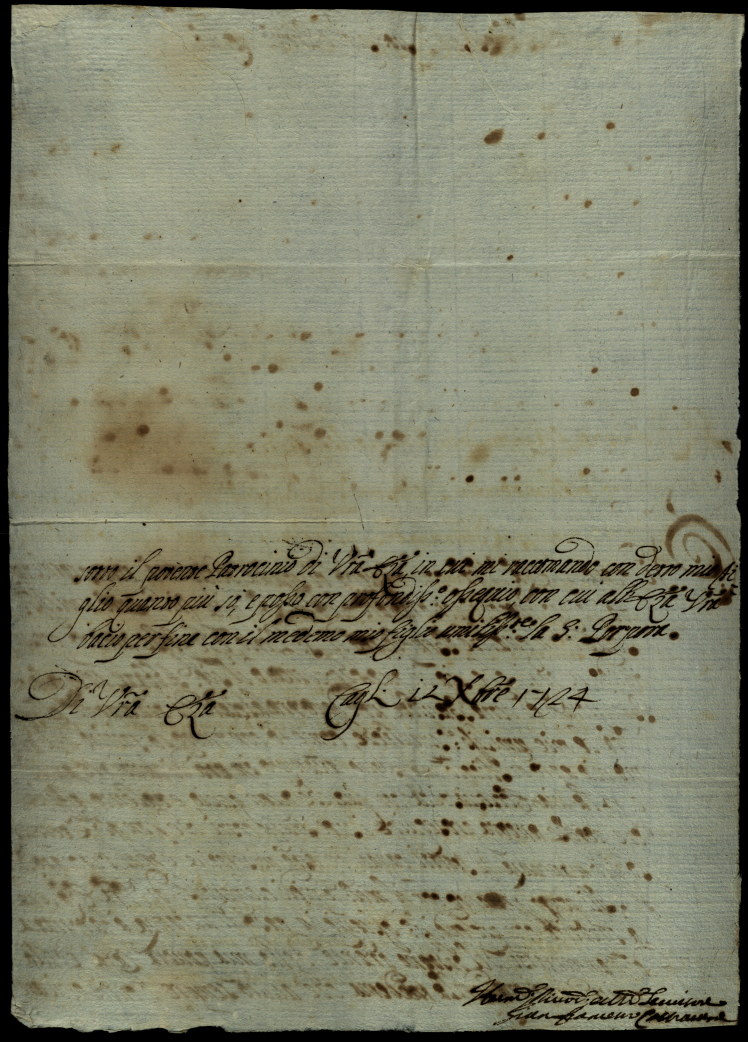 sotto il potente Patrocinio di Vrã Eẽa in cui mi racomando con detto mio fi
glio quanto più sò, e posso con profondiss.º ossequio con cui all' Eẽa Vrã
bacio per fine con il medemo mio figlio umiliss.te la S: Porpora.
Di Vrã Eẽa Cagli 12 Xbre 1724
Humil.
Gian